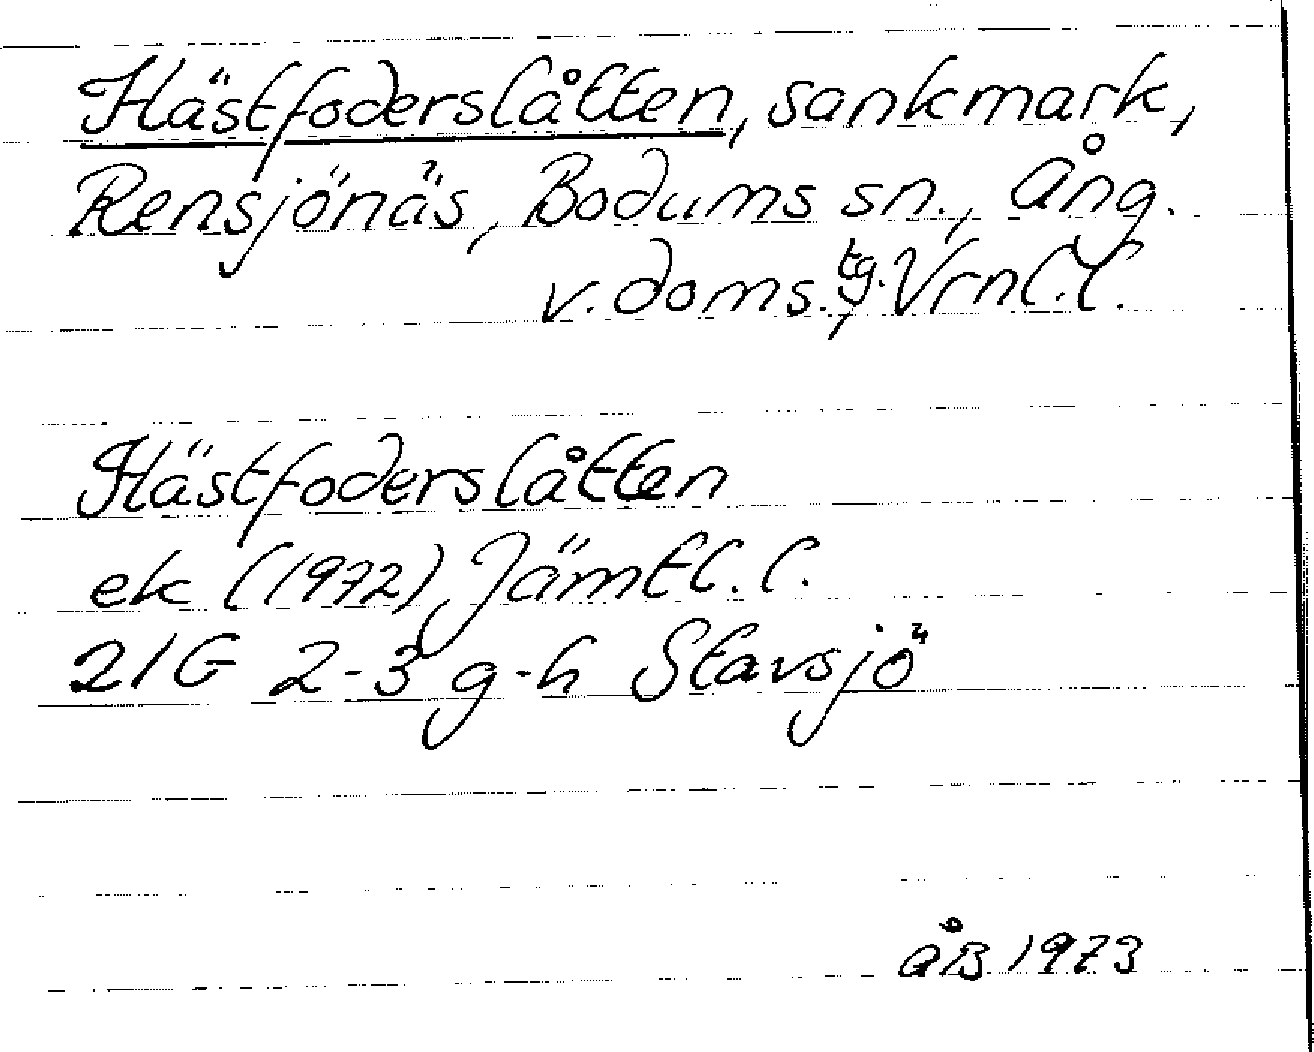 Hästfoderslåtten, sankmark,
Rensjönäs, Bodums sn., Ång.
v. doms. tg., Vrnl. l.
Hästfoderslåtten
ek (1972) Jämtl. l.
21G 2-3 g-h Stavsjö
ÅB 1973